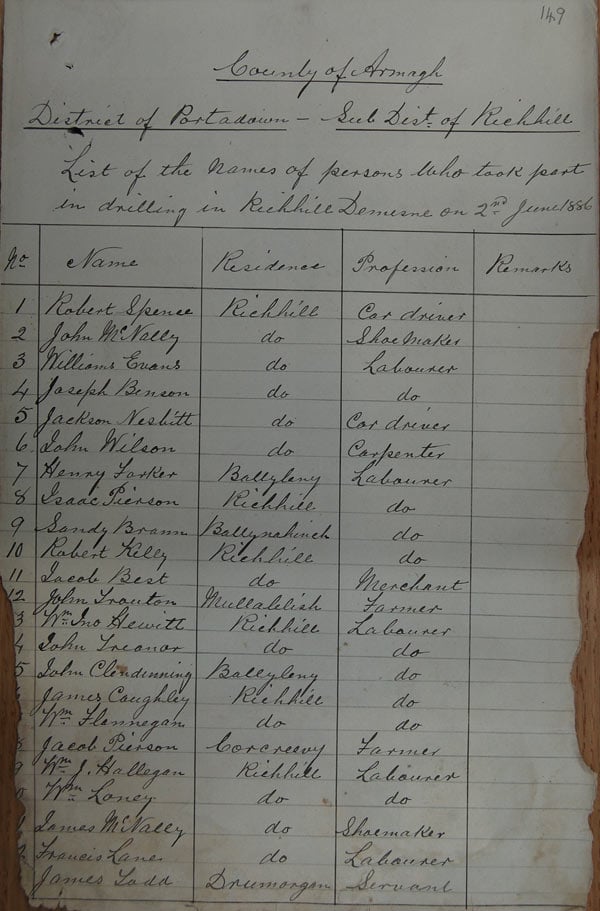 149
County of Armagh
District of Portadown - Sub Dist. of Richhill
List of the Names of persons who took part
in drilling in Richhill Demesne on 2nd June 1886
No Name Residence Profession Remarks
1 Robert Spence Richhill Car driver
2 John McNally do Shoemaker
3 Williams Evans do Labourer
4 Joseph Benson do do
5 Jackson Nesbitt do Car driver
6 John Wilson do Carpenter
7 Henry Ballyleny Labourer
8 Isaac Pierson Richhill do
9 Sandy Ballynahinch do
10 Robert Kelly Richhill do
11 Jacob Best do Merchant
12 John Trouton Mullalelish Farmer
3 Wm Jno Hewitt Richhill Labourer
4 John Treanor do do
5 John Clendinning Ballyleny do
James Caughley Richhill do
Wm Flannegan do do
8 Jacob Pierson Corcreevy Farmer
9 Wm J. Hallegan Richhill Labourer
0 Wm Loney do do
1 James McNally do Shoemaker
2 Francis Lane do Labourer
James Todd Drumorgan Servant